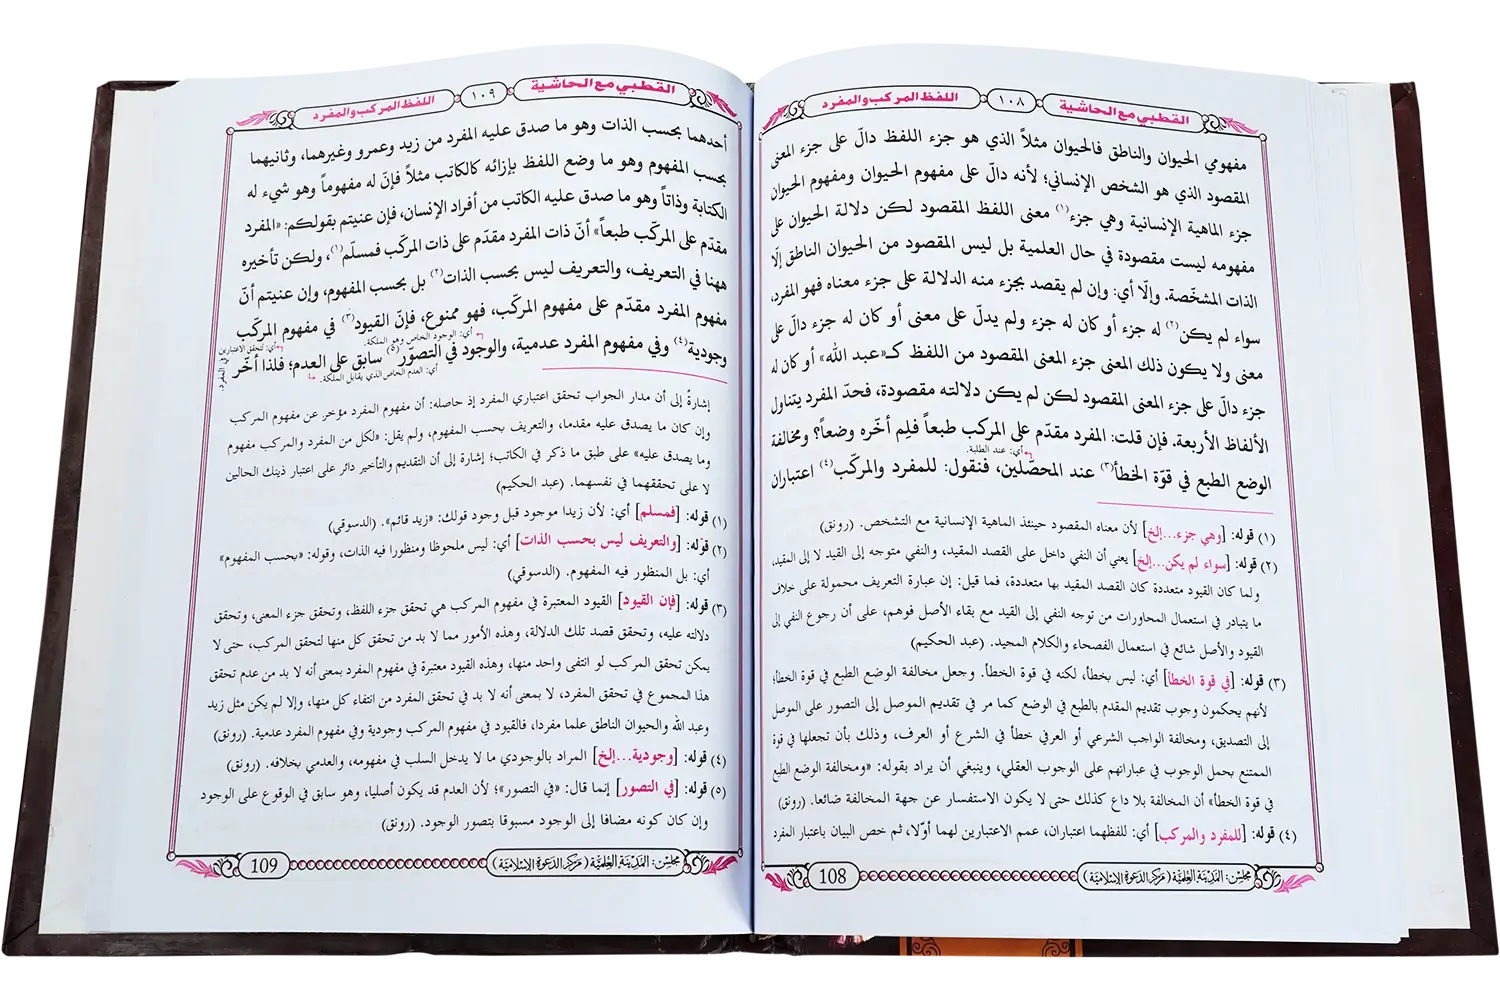 القطبي مع الحاشية
١٠٨
اللفظ المركب والمفرد
مفهومي الحيوان والناطق فالحيوان مثلاً الذي هو جزء اللفظ دالّ على جزء المعنى
المقصود الذي هو الشخص الإنساني؛ لأنه دالّ على مفهوم الحيوان ومفهوم الحيوان
جزء الماهية الإنسانية وهي جزء(١) معنى اللفظ المقصود لكن دلالة الحيوان على
مفهومه ليست مقصودة في حال العلمية بل ليس المقصود من الحيوان الناطق إلّا
الذات المشخّصة. وإلّا أي: وإن لم يقصد بجزء منه الدلالة على جزء معناه فهو المفرد،
سواء لم يكن(٢) له جزء أو كان له جزء ولم يدلّ على معنى أو كان له جزء دالّ على
معنى ولا يكون ذلك المعنى جزء المعنى المقصود من اللفظ كـ«عبد الله» أو كان له
جزء دالّ على جزء المعنى المقصود لكن لم يكن دلالته مقصودة، فحدّ المفرد يتناول
الألفاظ الأربعة. فإن قلت: المفرد مقدّم على المركب طبعاً فلِم أخّره وضعاً؟ ومخالفة
أي: عند الطلبة.
الوضع الطبع في قوّة الخطأ(٣) عند المحصّلين، فنقول: للمفرد والمركّب(٤) اعتباران
(١) قوله: [وهي جزء...إلخ] لأن معناه المقصود حينئذ الماهية الإنسانية مع التشخص. (رونق)
(٢) قوله: [سواء لم يكن...إلخ] يعني أن النفي داخل على القصد المقيد، والنفي متوجه إلى القيد لا إلى المقيد،
ولما كان القيود متعددة كان القصد المقيد بها متعددة، فما قيل: إن عبارة التعريف محمولة على خلاف
ما يتبادر في استعمال المحاورات من توجه النفي إلى القيد مع بقاء الأصل فوهم، على أن رجوع النفي إلى
القيود والأصل شائع في استعمال الفصحاء والكلام المجيد. (عبد الحكيم)
(٣) قوله: [في قوة الخطأ] أي: ليس بخطأ، لكنه في قوة الخطأ. وجعل مخالفة الوضع الطبع في قوة الخطأ؛
لأنهم يحكمون وجوب تقديم المقدم بالطبع في الوضع كما مر في تقديم الموصل إلى التصور على الموصل
إلى التصديق، ومخالفة الواجب الشرعي أو العرفي خطأ في الشرع أو العرف، وذلك بأن تجعلها في قوة
الممتنع بحمل الوجوب في عباراتهم على الوجوب العقلي، وينبغي أن يراد بقوله: «ومخالفة الوضع الطبع
في قوة الخطأ» أن المخالفة بلا داع كذلك حتى لا يكون الاستفسار عن جهة المخالفة ضائعا. (رونق)
(٤) قوله: [للمفرد والمركب] أي: للفظهما اعتباران، عمم الاعتبارين لهما أوّلا، ثم خص البيان باعتبار المفرد
مجلس: المدينة العلمية (مركز الدعوة الإسلامية)
108
القطبي مع الحاشية
١٠٩
اللفظ المركب والمفرد
أحدهما بحسب الذات وهو ما صدق عليه المفرد من زيد وعمرو وغيرهما، وثانيهما
بحسب المفهوم وهو ما وضع اللفظ بإزائه كالكاتب مثلاً فإنّ له مفهوماً وهو شيء له
الكتابة وذاتاً وهو ما صدق عليه الكاتب من أفراد الإنسان، فإن عنيتم بقولكم: «المفرد
مقدّم على المركّب طبعا» أنّ ذات المفرد مقدّم على ذات المركّب فمسلّم(١)، ولكن تأخيره
ههنا في التعريف، والتعريف ليس بحسب الذات(٢) بل بحسب المفهوم، وإن عنيتم أنّ
مفهوم المفرد مقدّم على مفهوم المركّب، فهو ممنوع، فإنّ القيود(٣) في مفهوم المركّب
أي: الوجود الخاص وهو الملكة.
أي: لتحقق الاعتبارين
وجودية(٤) وفي مفهوم المفرد عدمية، والوجود في التصوّر(٥) سابق على العدم؛ فلذا أخّر
أي: المفرد.
أي: العدم الخاص الذي يقابل الملكة.
إشارةً إلى أن مدار الجواب تحقق اعتباري المفرد إذ حاصله: أن مفهوم المفرد مؤخر عن مفهوم المركب
وإن كان ما يصدق عليه مقدما، والتعريف بحسب المفهوم، ولم يقل: «لكل من المفرد والمركب مفهوم
وما يصدق عليه» على طبق ما ذكر في الكاتب؛ إشارة إلى أن التقديم والتأخير دائر على اعتبار ذينك الحالين
لا على تحققهما في نفسهما. (عبد الحكيم)
(١) قوله: [فمسلم] أي: لأن زيدا موجود قبل وجود قولك: «زيد قائم». (الدسوقي)
(٢) قوله: [والتعريف ليس بحسب الذات] أي: ليس ملحوظا ومنظورا فيه الذات، وقوله: «بحسب المفهوم»
أي: بل المنظور فيه المفهوم. (الدسوقي)
(٣) قوله: [فإن القيود] القيود المعتبرة في مفهوم المركب هي تحقق جزء اللفظ، وتحقق جزء المعنى، وتحقق
دلالته عليه، وتحقق قصد تلك الدلالة، وهذه الأمور مما لا بد من تحقق كل منها لتحقق المركب، حتى لا
يمكن تحقق المركب لو انتفى واحد منها، وهذه القيود معتبرة في مفهوم المفرد بمعنى أنه لا بد من عدم تحقق
هذا المجموع في تحقق المفرد، لا بمعنى أنه لا بد في تحقق المفرد من انتفاء كل منها، وإلا لم يكن مثل زيد
وعبد الله والحيوان الناطق علما مفردا، فالقيود في مفهوم المركب وجودية وفي مفهوم المفرد عدمية. (رونق)
(٤) قوله: [وجودية...إلخ] المراد بالوجودي ما لا يدخل السلب في مفهومه، والعدمي بخلافه. (رونق)
(٥) قوله: [في التصور] إنما قال: «في التصور»؛ لأن العدم قد يكون أصليا، وهو سابق في الوقوع على الوجود
وإن كان كونه مضافا إلى الوجود مسبوقا بتصور الوجود. (رونق)
مجلس: المدينة العلمية (مركز الدعوة الإسلامية)
109